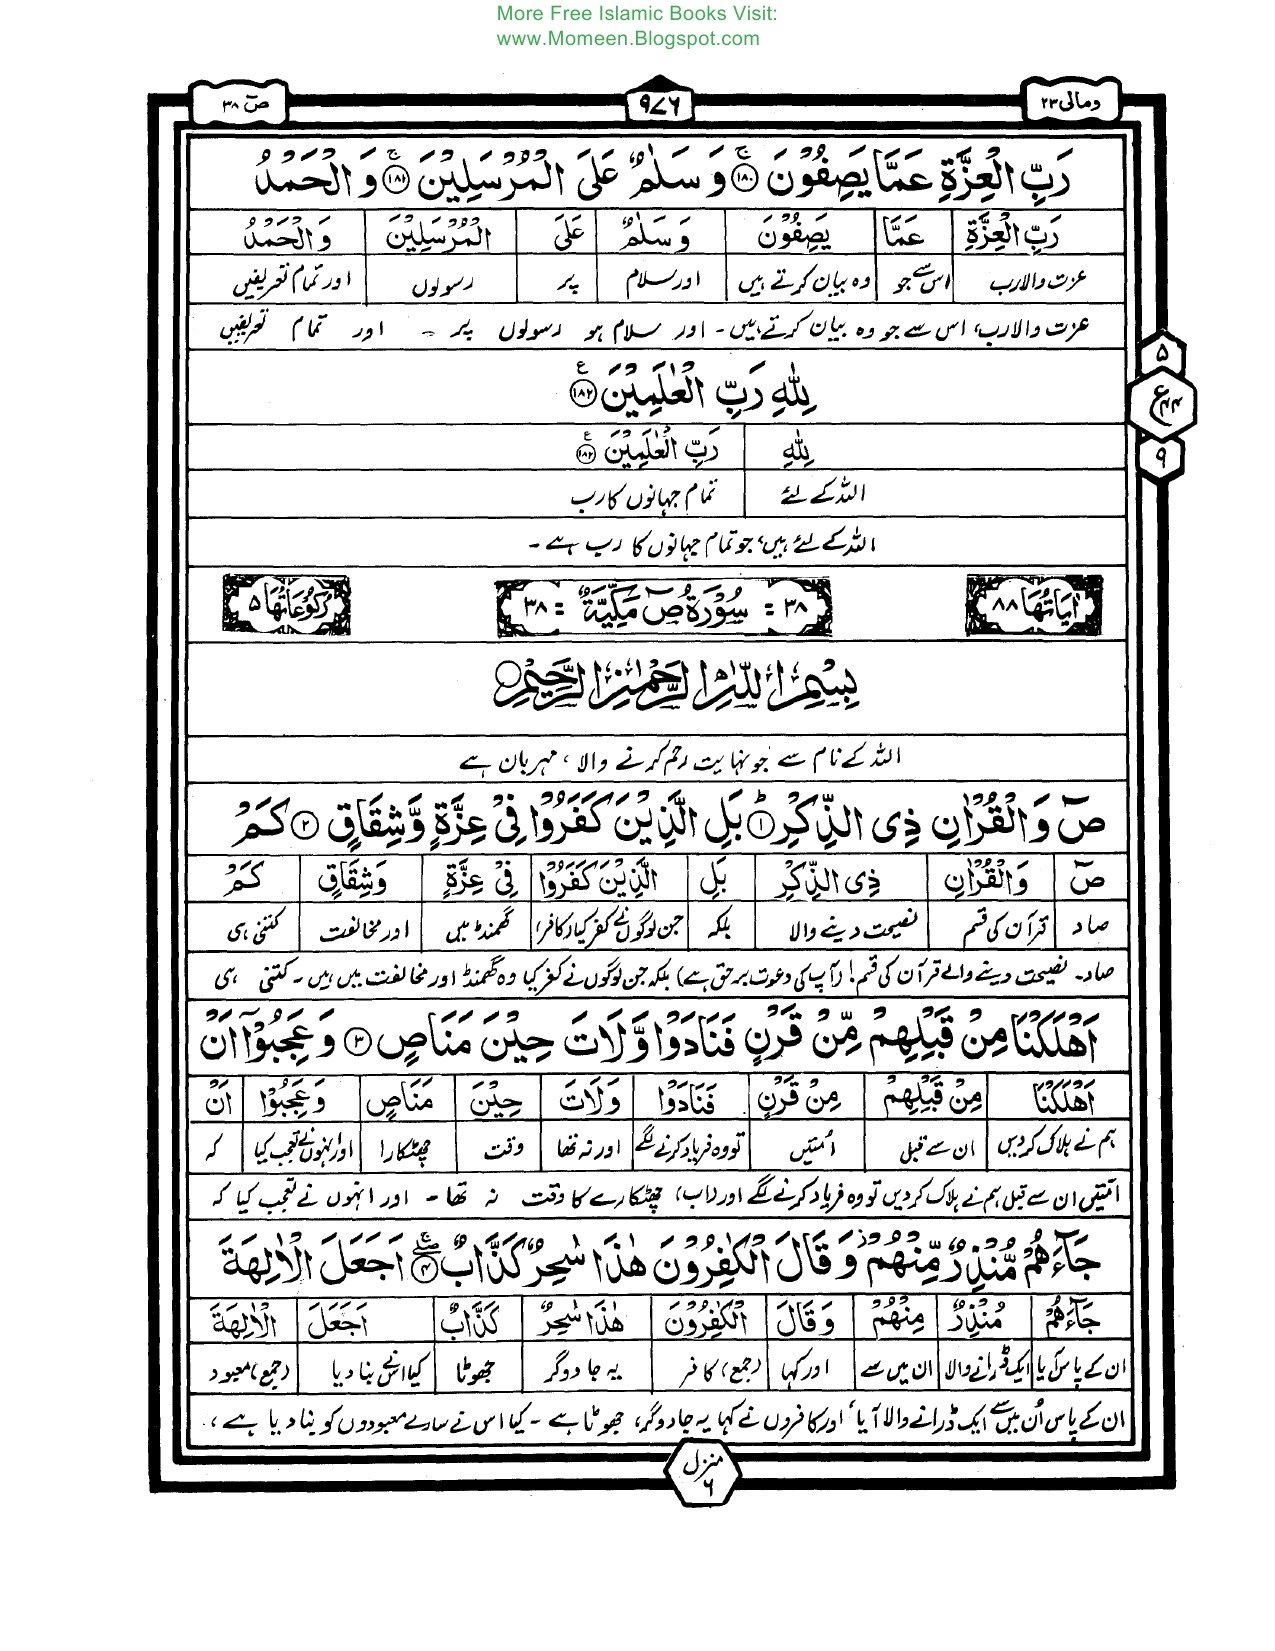 More Free Islamic Books Visit:
www.Momeen.Blogspot.com
ومالی ۲۳
۹۷۶
صٓ ۳۸
رَبِّ الْعِزَّةِ عَمَّا يَصِفُوْنَ ۚ﴿۱۸۰﴾ وَ سَلٰمٌ عَلَى الْمُرْسَلِيْنَ ۚ﴿۱۸۱﴾ وَ الْحَمْدُ
رَبِّ الْعِزَّةِ عَمَّا يَصِفُوْنَ وَ سَلٰمٌ عَلَى الْمُرْسَلِيْنَ وَ الْحَمْدُ
عزت والا رب اس سے جو وہ بیان کرتے ہیں اور سلام پر رسولوں اور تمام تعریفیں
عزت والا رب، اس سے جو وہ بیان کرتے ہیں۔ اور سلام ہو رسولوں پر ۔ اور تمام تعریفیں
لِلّٰهِ رَبِّ الْعٰلَمِيْنَ ۧ﴿۱۸۲﴾
لِلّٰهِ رَبِّ الْعٰلَمِيْنَ ۧ﴿۱۸۲﴾
اللہ کے لئے تمام جہانوں کا رب
اللہ کے لئے ہیں، جو تمام جہانوں کا رب ہے ۔
۵
ع ۴۴
۹
اٰيَاتُهَا ۸۸
۳۸ = سُوْرَةُ صٓ مَكِّيَّةٌ = ۳۸
رُكُوْعَاتُهَا ۵
بِسْمِ اللّٰهِ الرَّحْمٰنِ الرَّحِيْمِ
اللہ کے نام سے جو نہایت رحم کرنے والا ، مہربان ہے
صٓ وَ الْقُرْاٰنِ ذِى الذِّكْرِ ؕ﴿۱﴾ بَلِ الَّذِيْنَ كَفَرُوْا فِىْ عِزَّةٍ وَّ شِقَاقٍ ﴿۲﴾ كَمْ
صٓ وَ الْقُرْاٰنِ ذِى الذِّكْرِ بَلِ الَّذِيْنَ كَفَرُوْا فِىْ عِزَّةٍ وَ شِقَاقٍ كَمْ
صاد قرآن کی قسم نصیحت دینے والا بلکہ جن لوگوں نے کفر کیا (کافر) گھمنڈ میں اور مخالفت کتنی ہی
صاد۔ نصیحت دینے والے قرآن کی قسم! (آپ کی دعوت برحق ہے) بلکہ جن لوگوں نے کفر کیا وہ گھمنڈ اور مخالفت میں ہیں ۔ کتنی ہی
اَهْلَكْنَا مِنْ قَبْلِهِمْ مِّنْ قَرْنٍ فَنَادَوْا وَّ لَاتَ حِيْنَ مَنَاصٍ ﴿۳﴾ وَ عَجِبُوْۤا اَنْ
اَهْلَكْنَا مِنْ قَبْلِهِمْ مِنْ قَرْنٍ فَنَادَوْا وَ لَاتَ حِيْنَ مَنَاصٍ وَ عَجِبُوْا اَنْ
ہم نے ہلاک کردیں ان سے قبل امتیں تو وہ فریاد کرنے لگے اور نہ تھا وقت چھٹکارا اور انہوں نے تعجب کیا کہ
امتیں ان سے قبل ہم نے ہلاک کردیں تو وہ فریاد کرنے لگے اور (اب) چھٹکارے کا وقت نہ تھا ۔ اور انہوں نے تعجب کیا کہ
جَآءَهُمْ مُّنْذِرٌ مِّنْهُمْ وَ قَالَ الْكٰفِرُوْنَ هٰذَا سٰحِرٌ كَذَّابٌ ۖۚ﴿۴﴾ اَجَعَلَ الْاٰلِهَةَ
جَآءَهُمْ مُنْذِرٌ مِنْهُمْ وَ قَالَ الْكٰفِرُوْنَ هٰذَا سٰحِرٌ كَذَّابٌ اَجَعَلَ الْاٰلِهَةَ
ان کے پاس آیا ایک ڈرانے والا ان میں سے اور کہا (جمع) کافر یہ جادوگر جھوٹا کیا اس نے بنا دیا (جمع) معبود
ان کے پاس اُن میں سے ایک ڈرانے والا آیا، اور کافروں نے کہا یہ جادوگر، جھوٹا ہے ۔ کیا اس نے سارے معبودوں کو بنا دیا ہے ،
منزل ۶